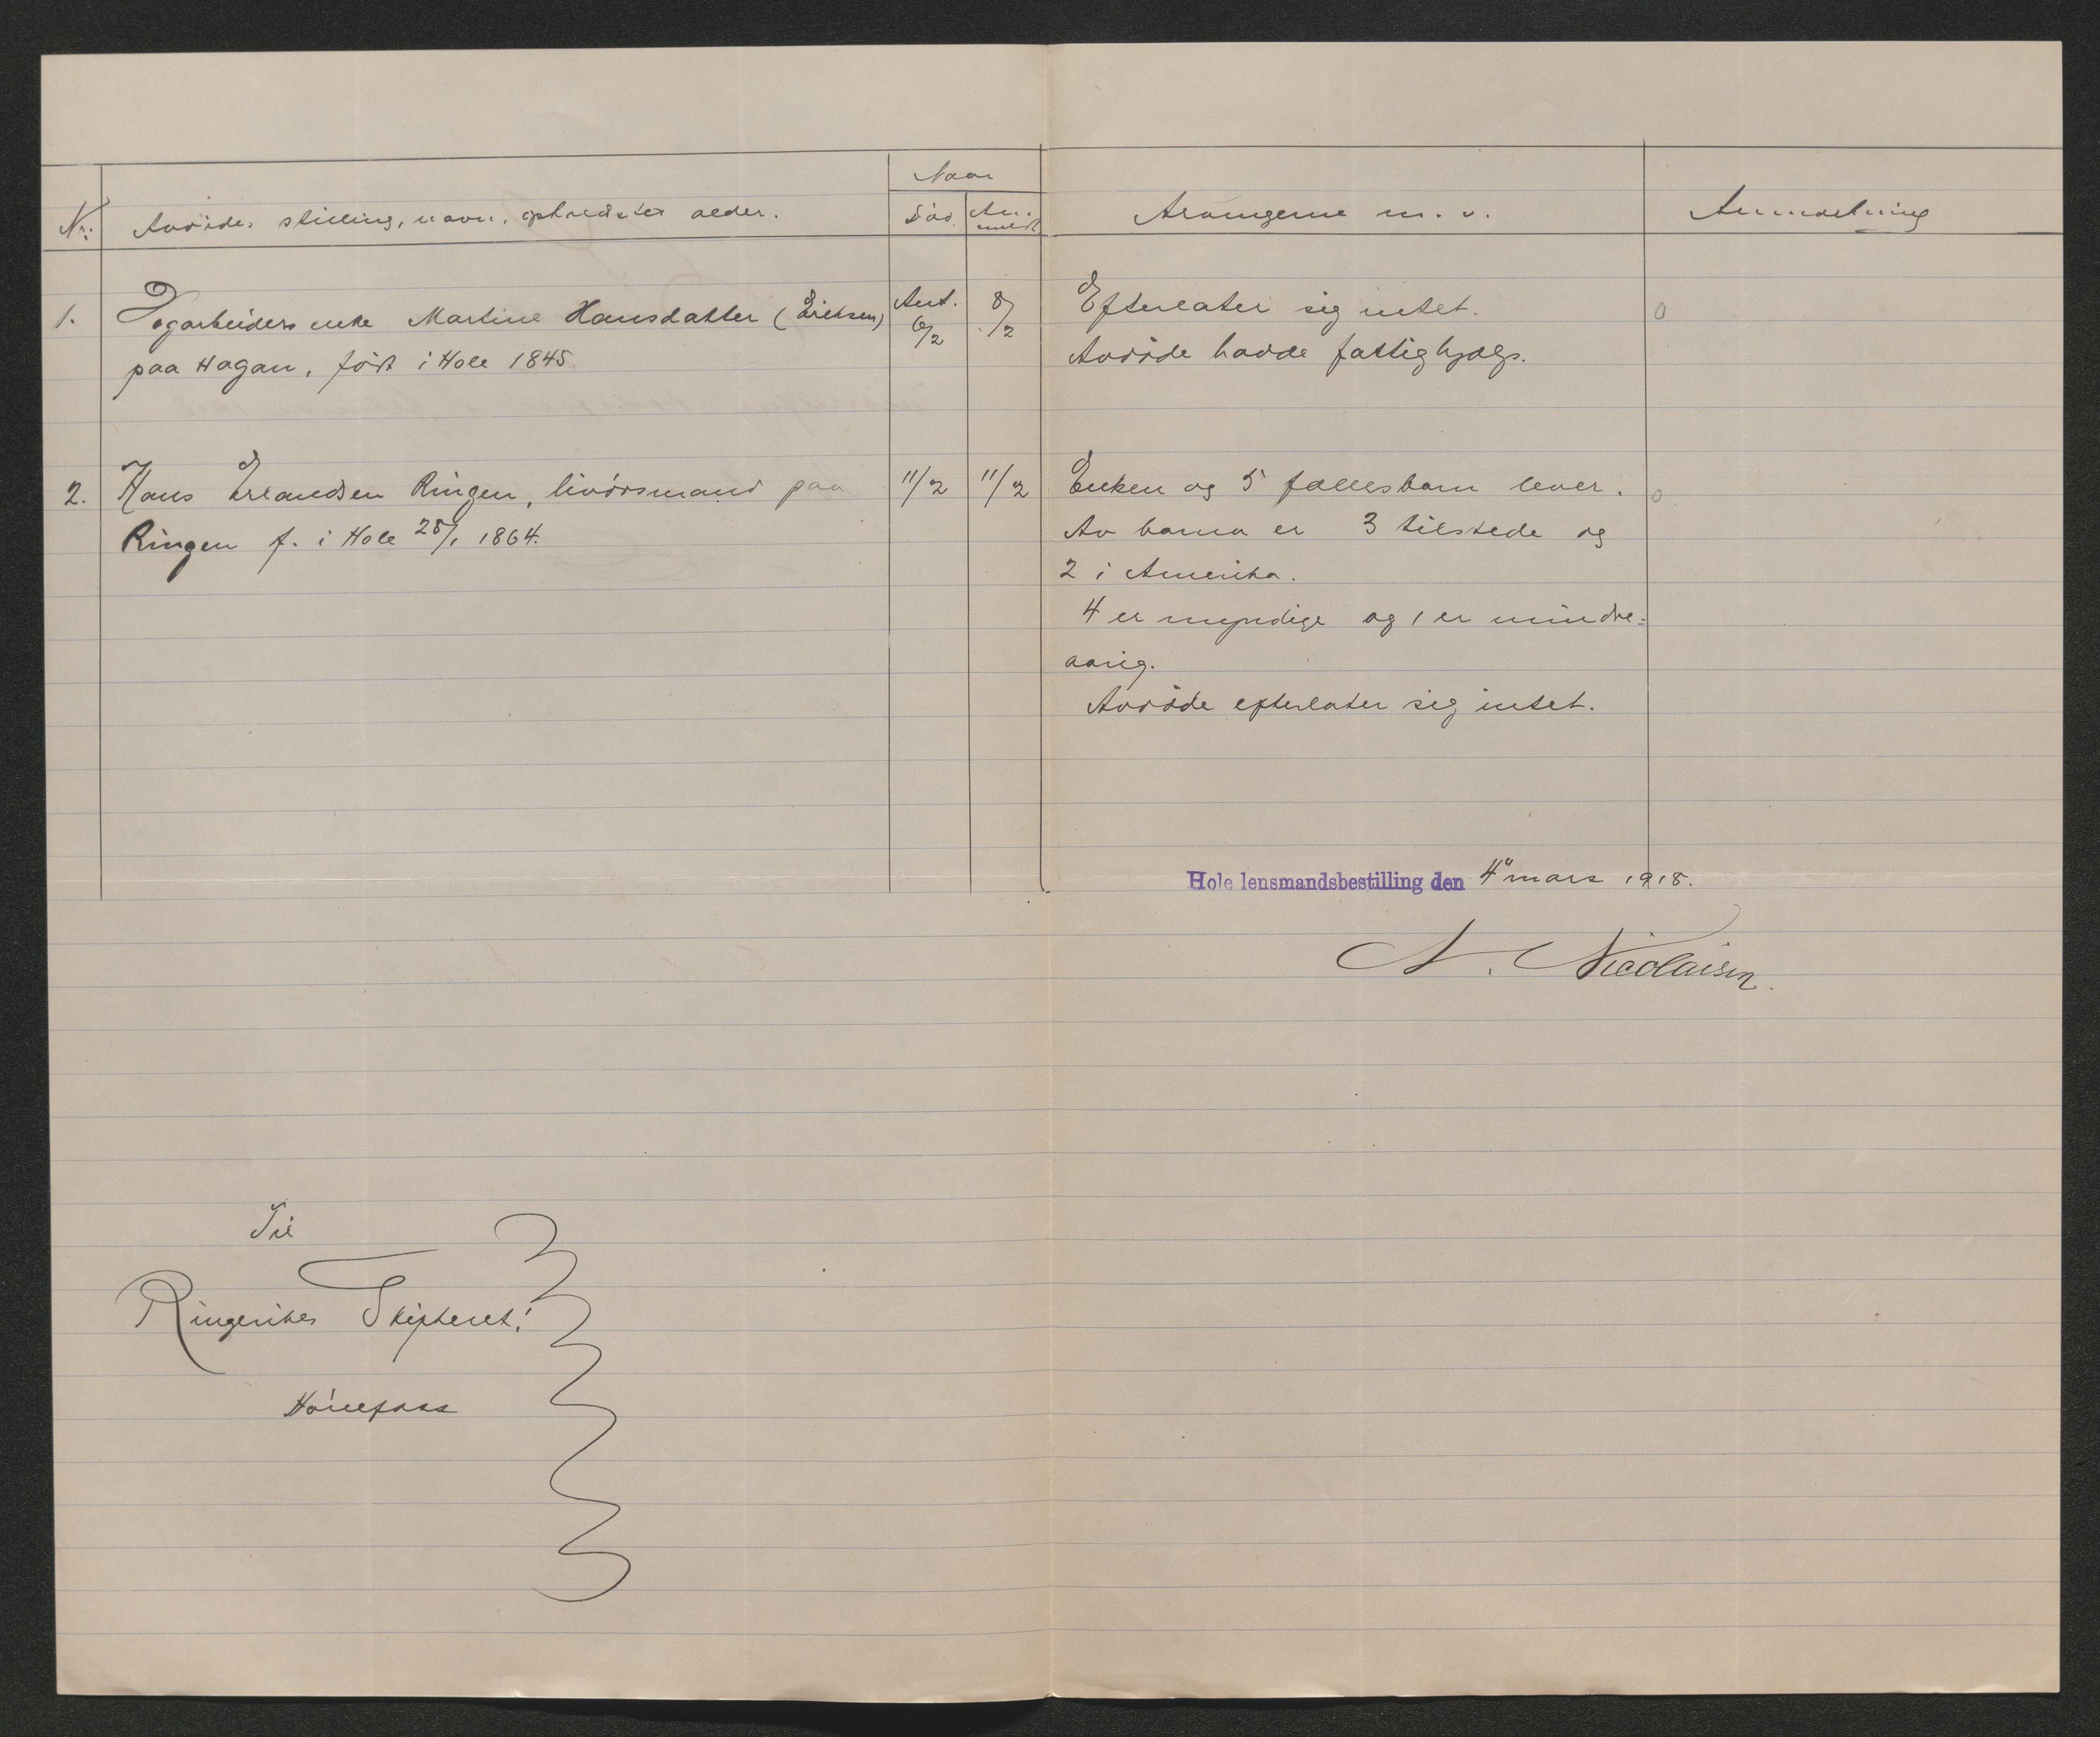 Naar
Nr: Avdødes stilling, navn, opholdssted alder. Død An-meldt Arvingerne m. v. Anmerkning
1. Dagarbeiders enke Martine Hansdatter (Eriksen) Ant. 6/2 8/2 Efterlater sig intet. 0
paa Hagan, født i Hole 1845 Avdøde hadde fattighjælp.
2. Hans Erlandsen Ringen, livørsmand paa 11/2 11/2 Enken og 5 fællesbarn lever. 0
Ringen f. i Hole 28/1 1864. Av barna er 3 tilstede og
2 i Amerika.
4 er myndige og 1 er mindre=
aarig.
Avdøde efterlater sig intet.
Hole lensmandsbestilling den 4 mars 1918.
N. Nicolaisen.
Til
Ringerikes Skifteret!
Hønefoss